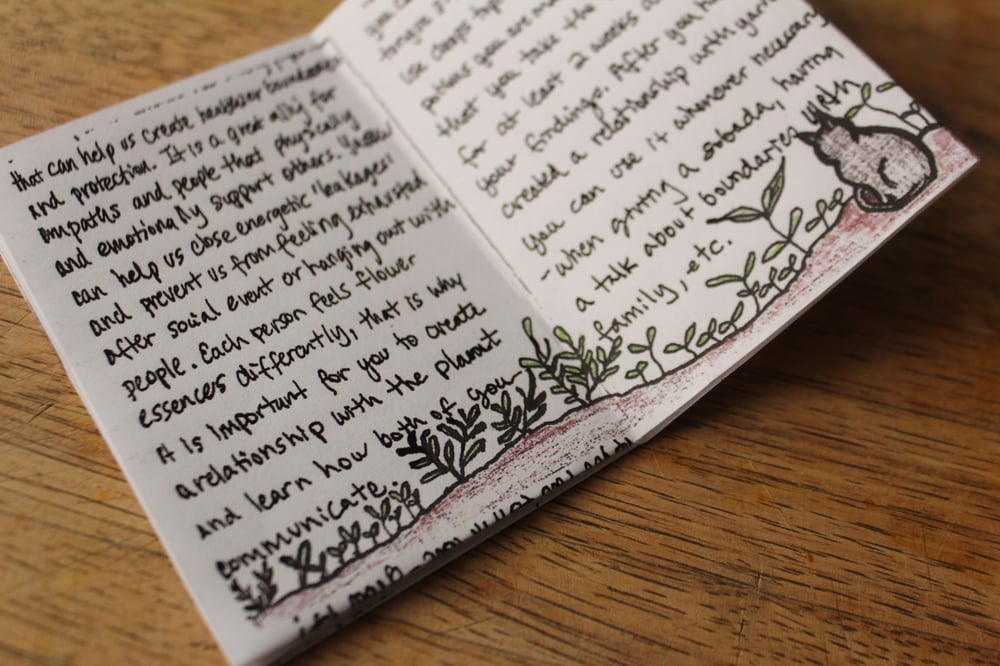 that can help us create healthier boundaries
and protection. It is a great ally for
empaths and people that physically
and emotionally support others. Yarrow
can help us close energetic "leakages"
and prevent us from feeling exhausted
after social event or hanging out with
people. Each person feels flower
essences differently, that is why
it is important for you to create
a relationship with the plant
and learn how both of you
communicate.
you
use
you are
that you take the
for at least 2 weeks
your findings. After you
created a relationship with
you can use it whenever necessary
-when giving a sobada, having
a talk about boundaries with
family, etc.